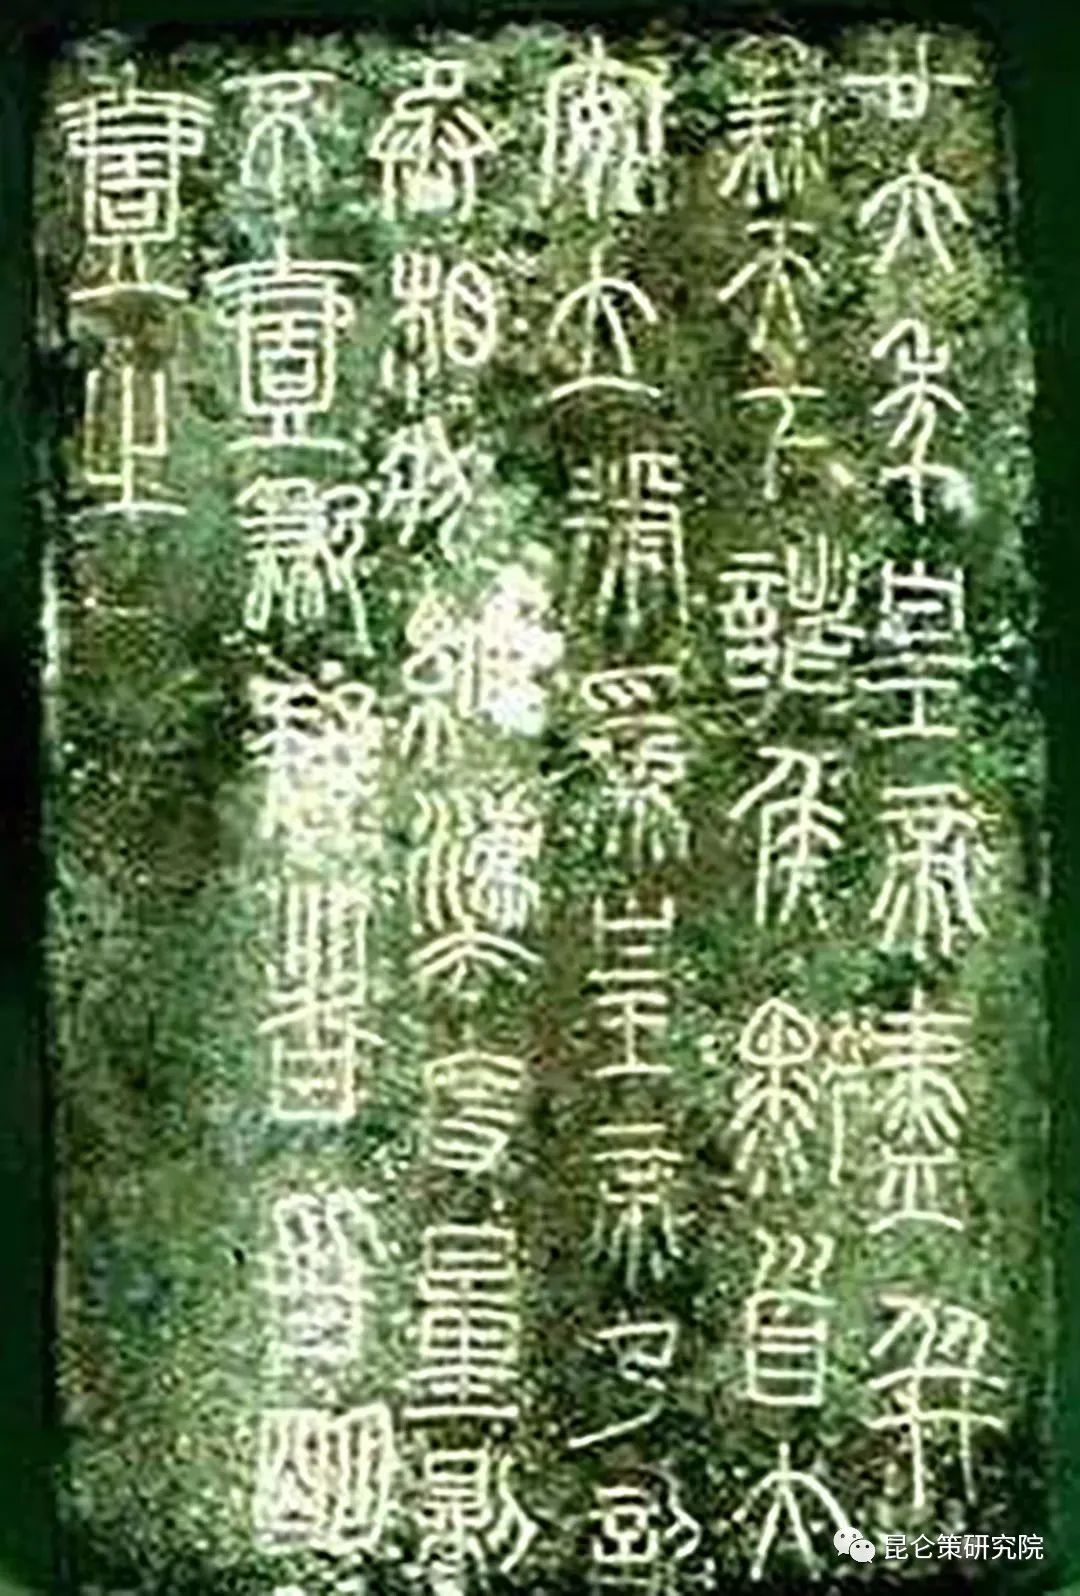 廿六年皇帝盡并
兼天下諸侯黔首大
安立號為皇帝乃詔
丞相狀綰灋度量則
不壹歉疑者皆明
壹之
昆仑策研究院